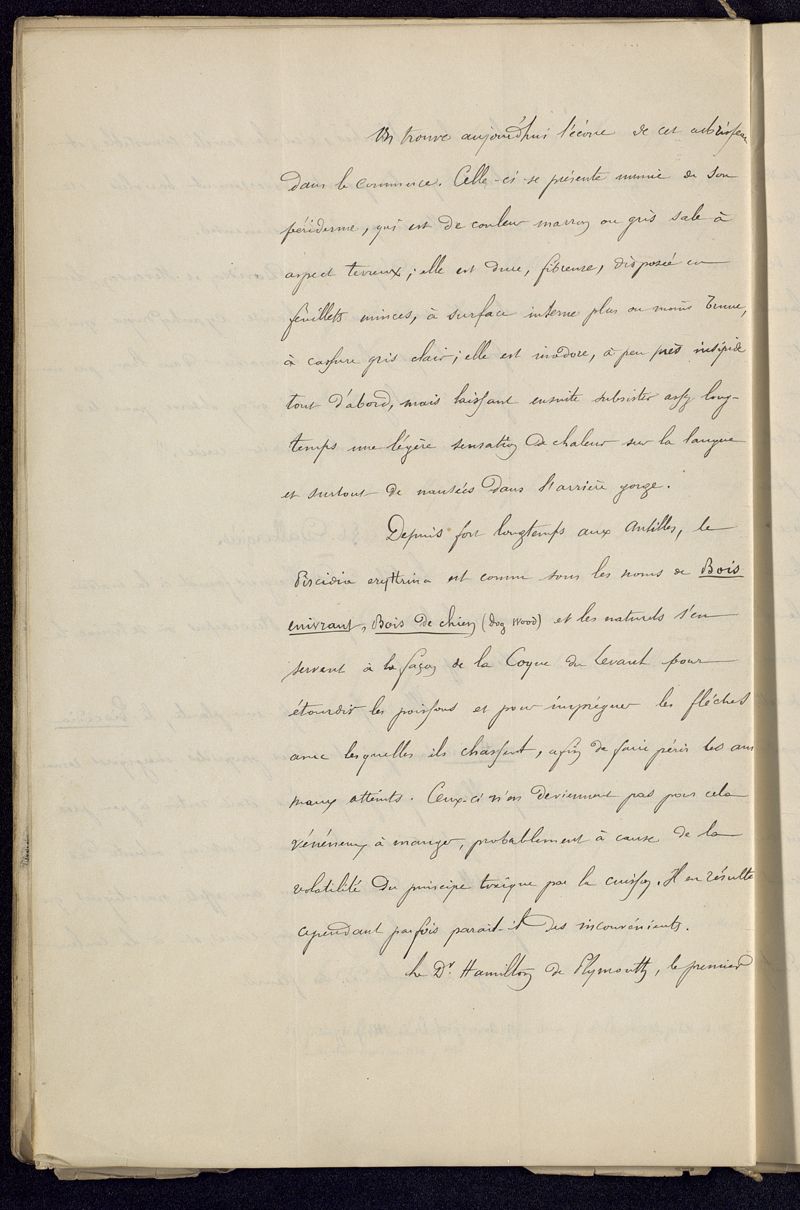 On trouve aujourd'hui l'écorce de cet arbrisseau
dans le commerce. Celle-ci se présente munie de son
périderme, qui est de couleur marron ou gris sale à
aspect terreux ; elle est dure, fibreuse, disposée en
feuillets minces, à surface interne plus ou moins brune,
à cassure gris clair ; elle est inodore, à peu près insipide
tout d'abord, mais laissant ensuite subsister assez long-
temps une légère sensation de chaleur sur la langue
et surtout de nausées dans l'arrière gorge.
Depuis fort longtemps aux Antilles, le
Piscidia erythrina est connu sous les noms de Bois
enivrant, Bois de chien (dog wood) et les naturels s'en
servent à la façon de la Coque du Levant pour
étourdir les poissons et pour imprégner les flèches
avec lesquelles ils chassent, afin de faire périr les ani
maux atteints. Ceux-ci n'en deviennent pas pour cela
vénéneux à manger, probablement à cause de la
volatilité du principe toxique par la cuisson. Il en résulte
cependant parfois parait-il des inconvénients.
Le Dr Hamilton de Plymouth, le premier